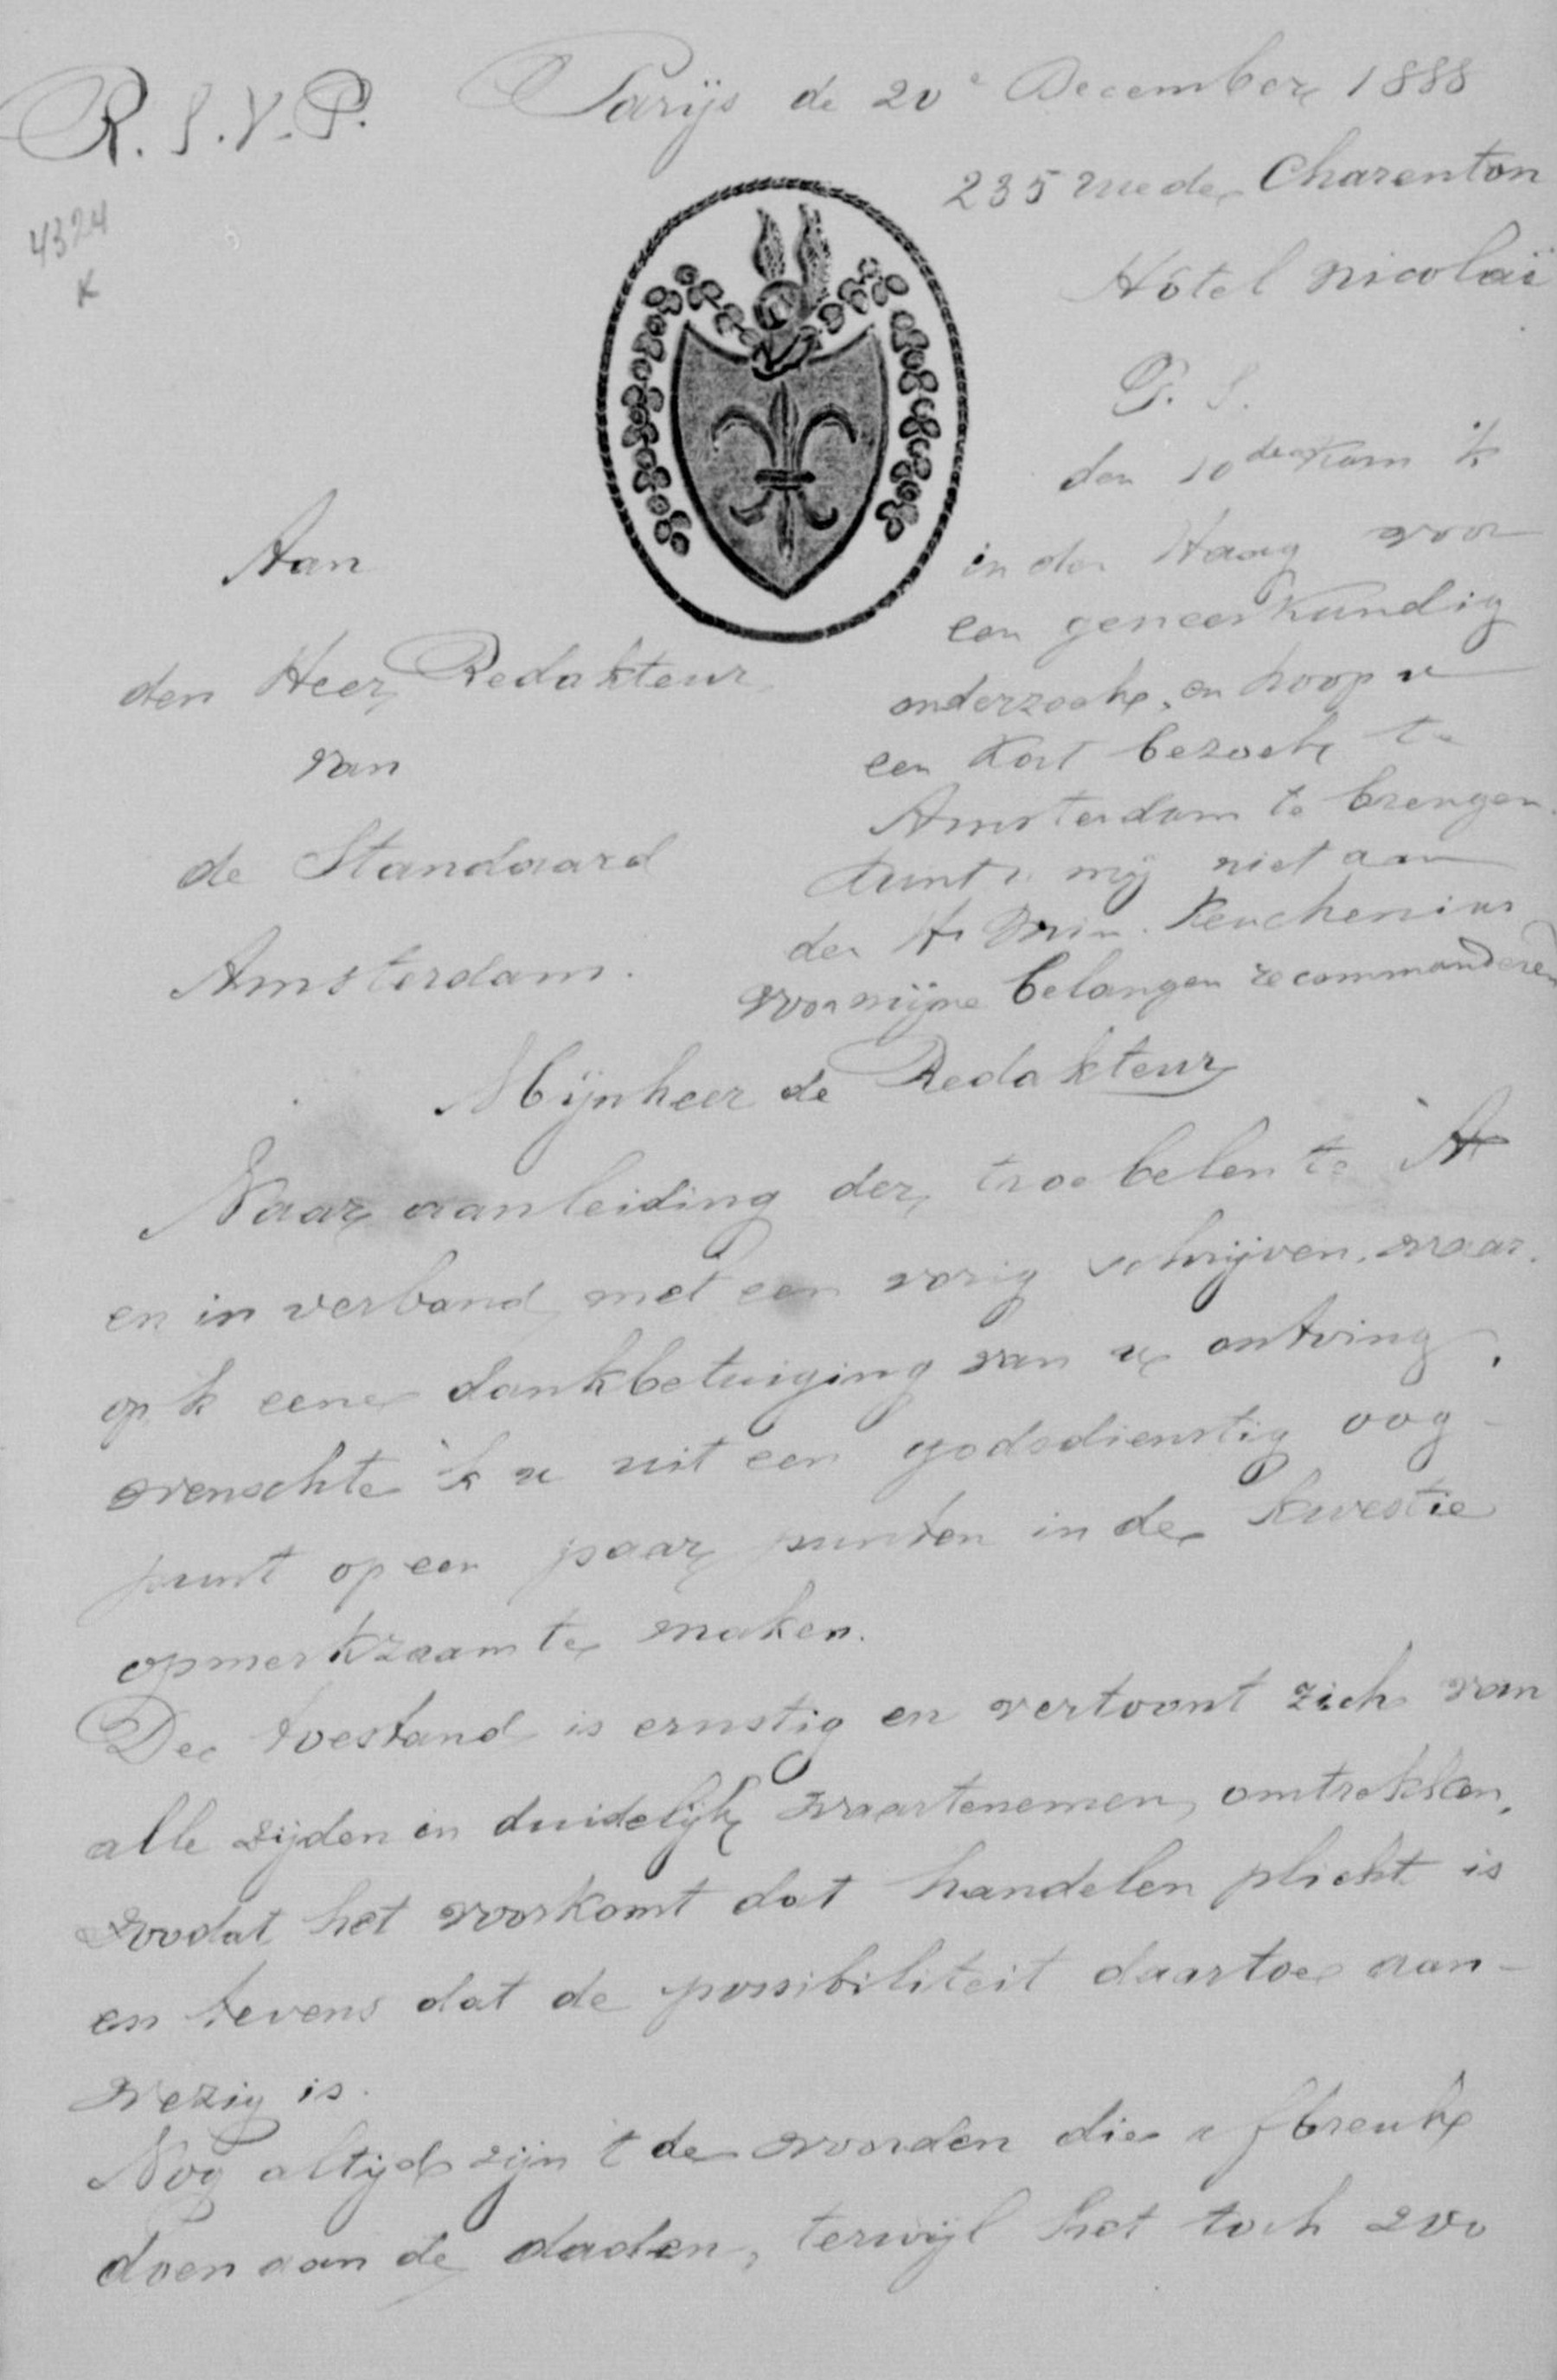 R. S. V. P.
Parijs de 20e December 1888
235 rue de Charenton
Hôtel Nicolaï
4324
K
P. S.
den 10den kom 'k
in den Haag voor
een geneeskundig
onderzoek, en hoop u
een kort bezoek te
Amsterdam te brengen.
kunt u mij niet aan
den Hr Min. Keuchenius
voor mijne belangen recommanderen
Aan
den Heer Redakteur
van
de Standaard
Amsterdam.
Mijnheer de Redakteur
Naar aanleiding der troebelen te A
en in verband met een vorig schrijven, waar-
op 'k eene dankbetuiging van u ontving,
wenschte 'k u uit een godsdienstig oog-
punt op een paar punten in de kwestie
opmerkzaam te maken.
De toestand is ernstig en vertoont zich van
alle zijden in duidelijk waartenemen omtrekken,
zoodat het voorkomt dat handelen plicht is
en tevens dat de possibiliteit daartoe aan-
wezig is.
Nog altijd zijn 't de woorden die afbreuk
doen aan de daden, terwijl het toch zoo